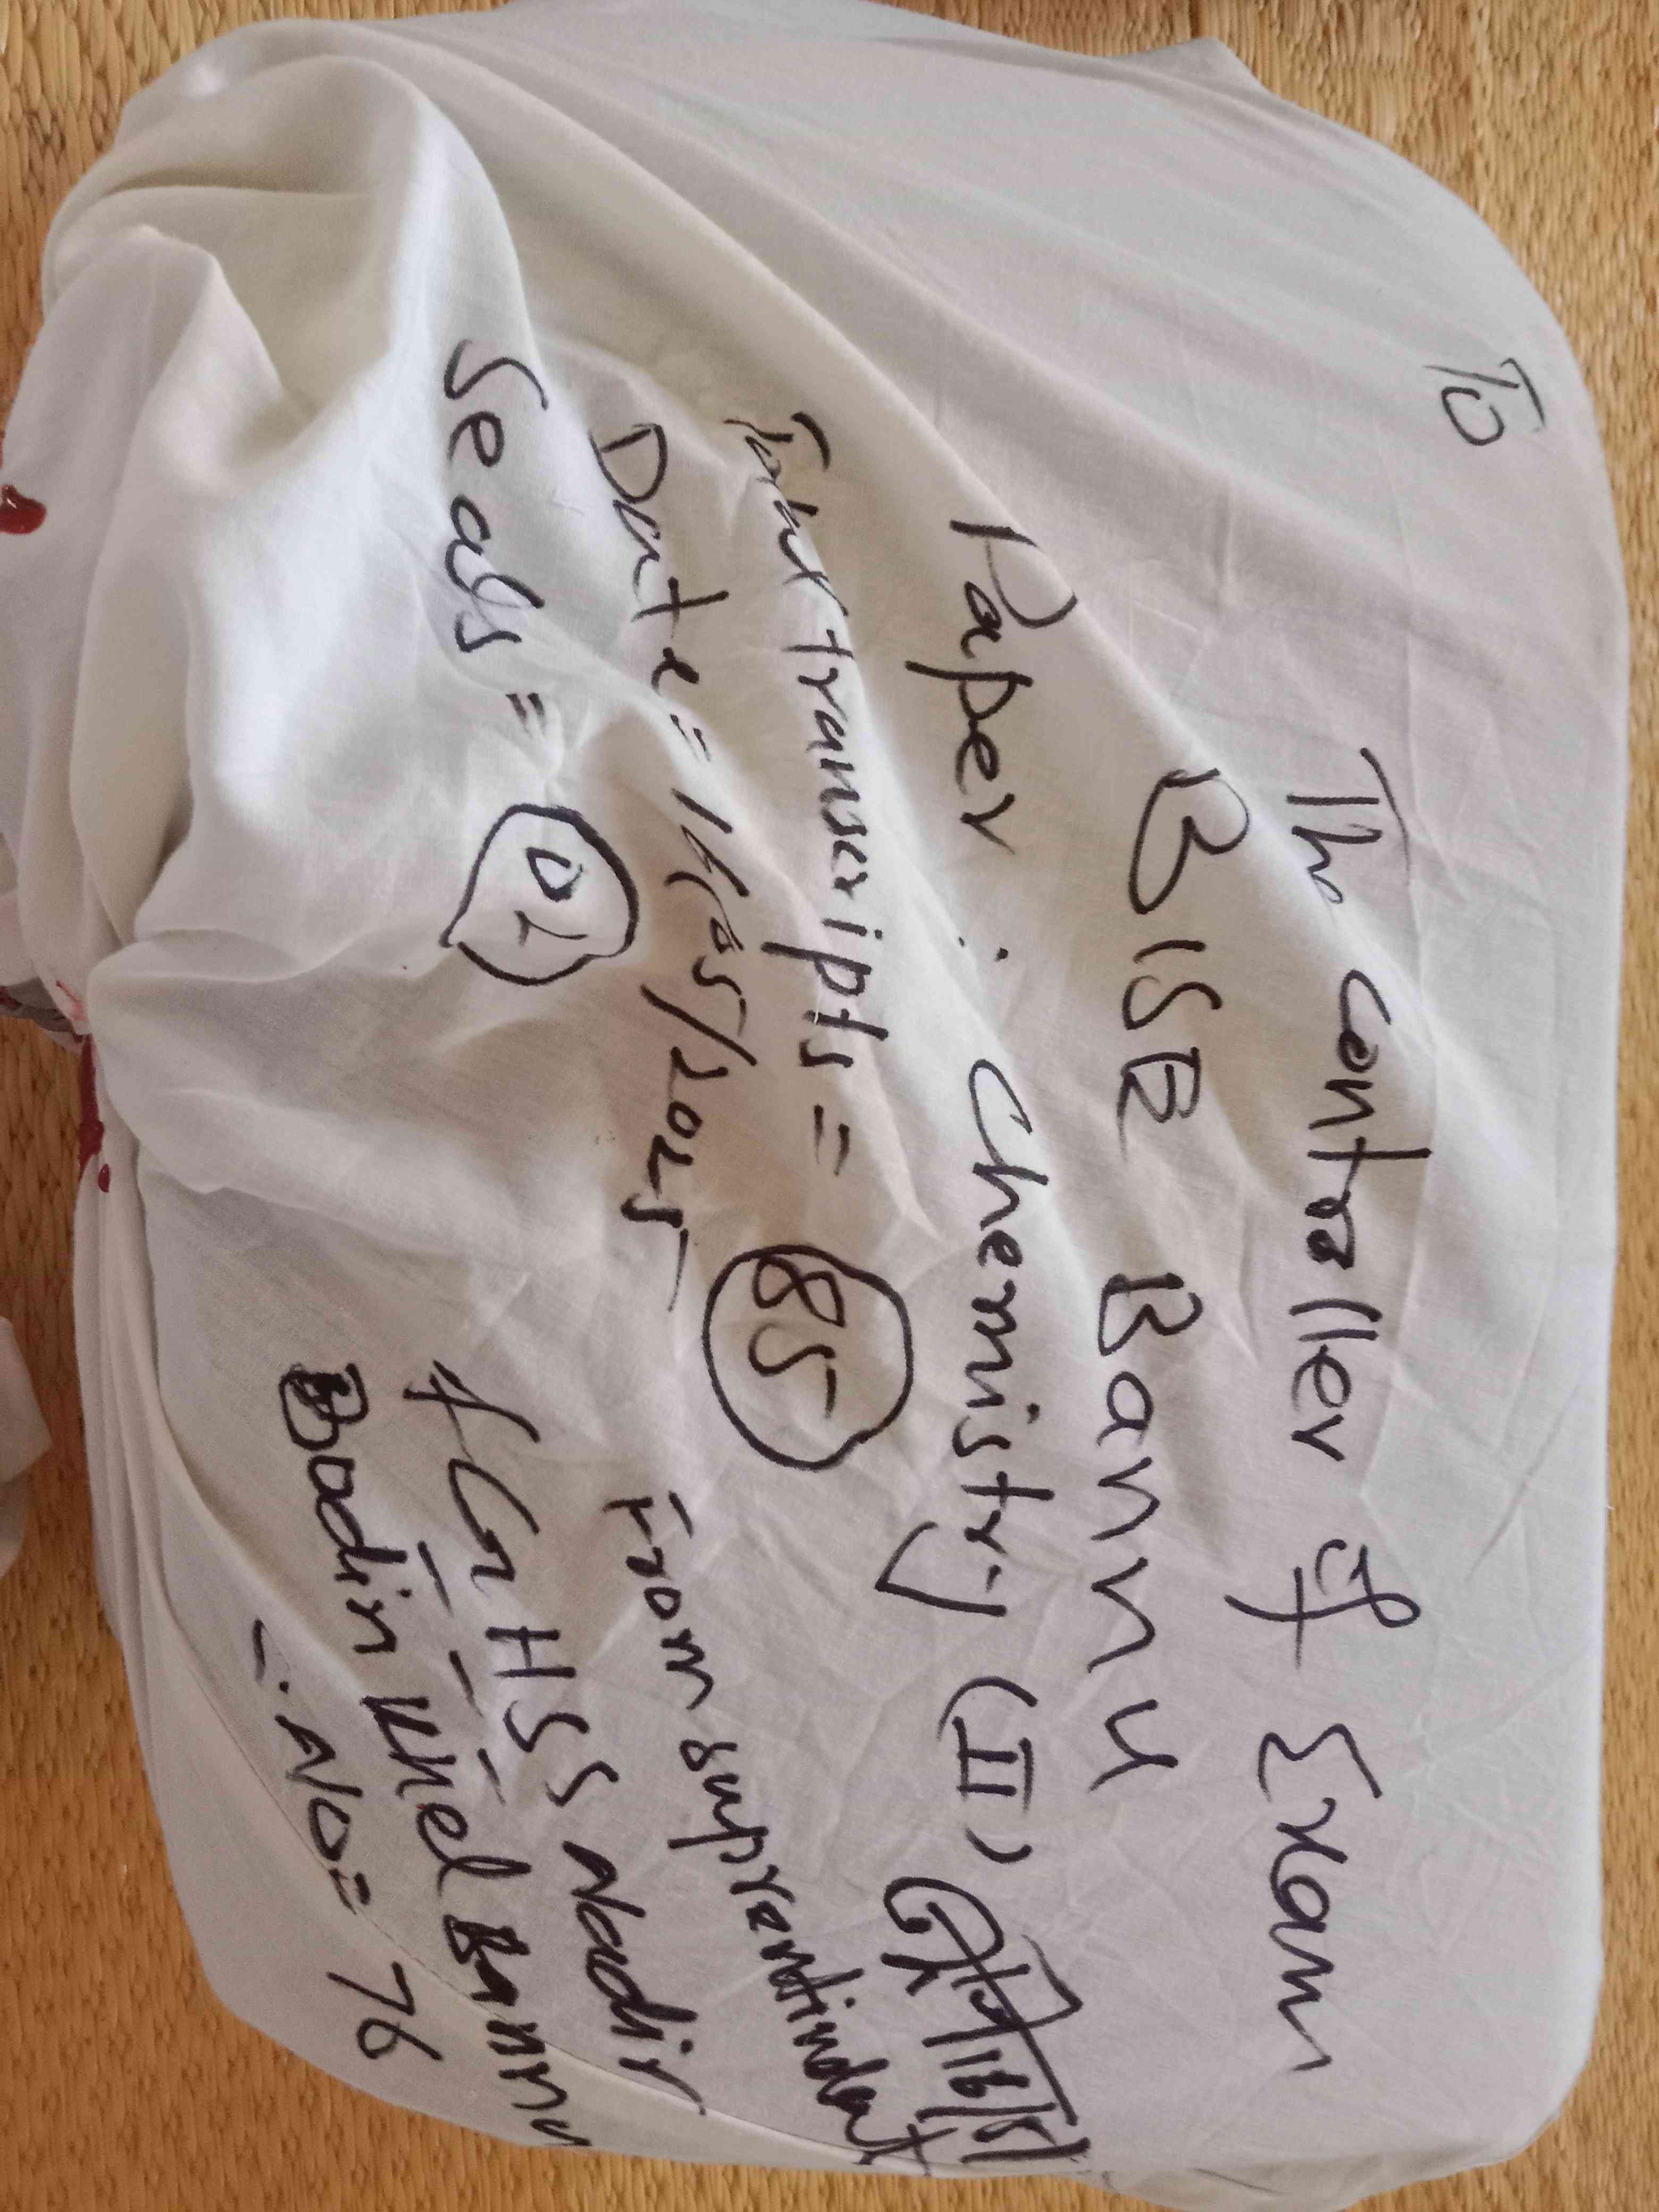 To
The controller of Exam
BISE Bannu
Paper : Chemistry (II)
Total transcripts = 85
Date = 16/05/2025
Seals = 02
From superintendent
GHSS Nadir
Bodin Khel Bannu
No = 76